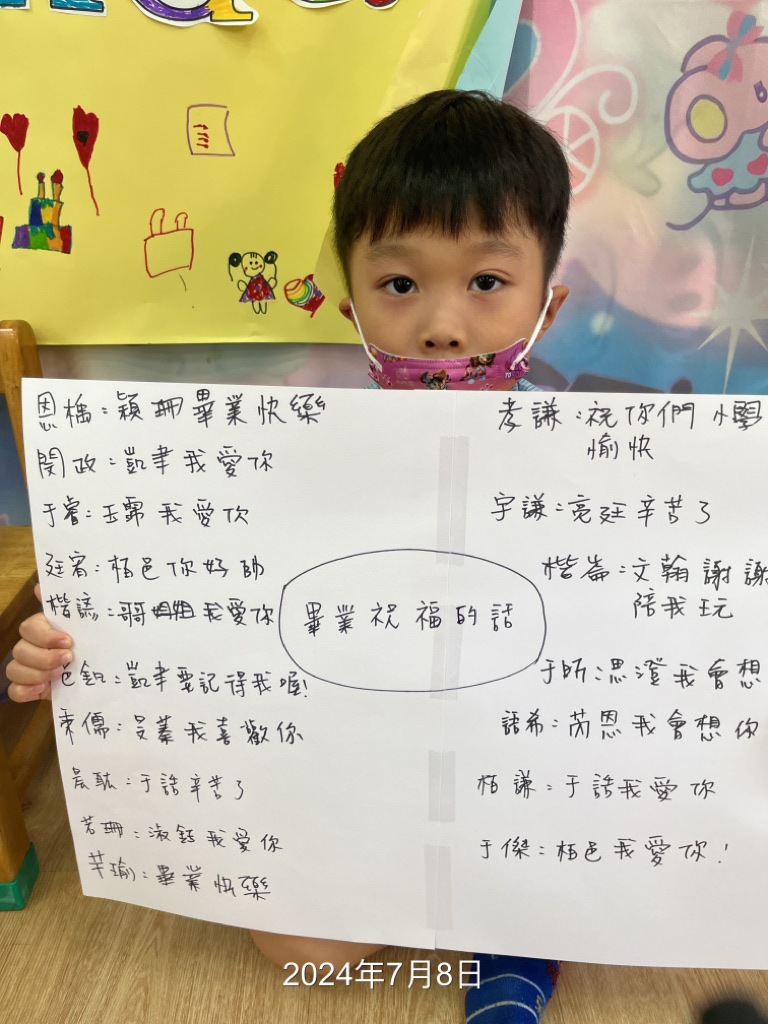 恩楀:穎珊畢業快樂
閔政:凱聿我愛你
于睿:玉霈我愛你
廷宥:栢邑你好帥
楷諺:哥哥姐姐我愛你
邑釦:凱聿要記得我喔!
秉儒:昱蓁我喜歡你
晨馡:于誥辛苦了
若珊:淑鈺我愛你
芊瑜:畢業快樂
畢業祝福的話
孝謙:祝你們 小學
愉快
宇謙:亮廷辛苦了
楷崙:文翰謝謝
陪我玩
于昕:思澄我會想
語希:芮恩我會想你
栢謙:于誥我愛你
于傑:栢邑我愛你!
2024年7月8日